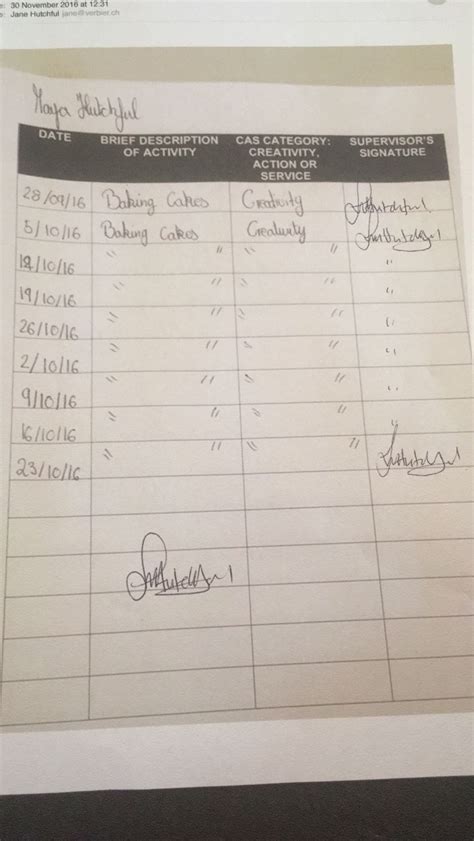 30 November 2016 at 12:31
Jane Hutchful jane@verbier.ch
Maya Hutchful
DATE BRIEF DESCRIPTION OF ACTIVITY CAS CATEGORY: CREATIVITY, ACTION OR SERVICE SUPERVISOR'S SIGNATURE
28/09/16 Baking Cakes Creativity
5/10/16 Baking Cakes Creativity
12/10/16 " " " " "
19/10/16 " " " " "
26/10/16 " " " " "
2/10/16 " " " " "
9/10/16 " " " " "
16/10/16 " " " " "
23/10/16 " " " "